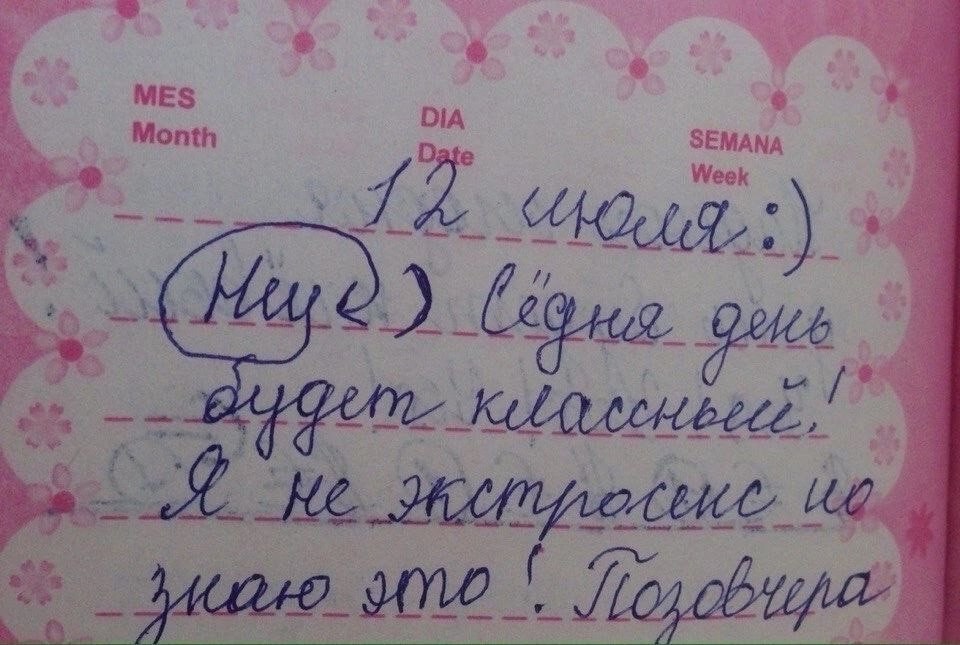 MES
Month
DIA
Date
SEMANA
Week
12 июля :)
Сёдня день
будет классный!
Я не экстросенс но
знаю это! Позовчера